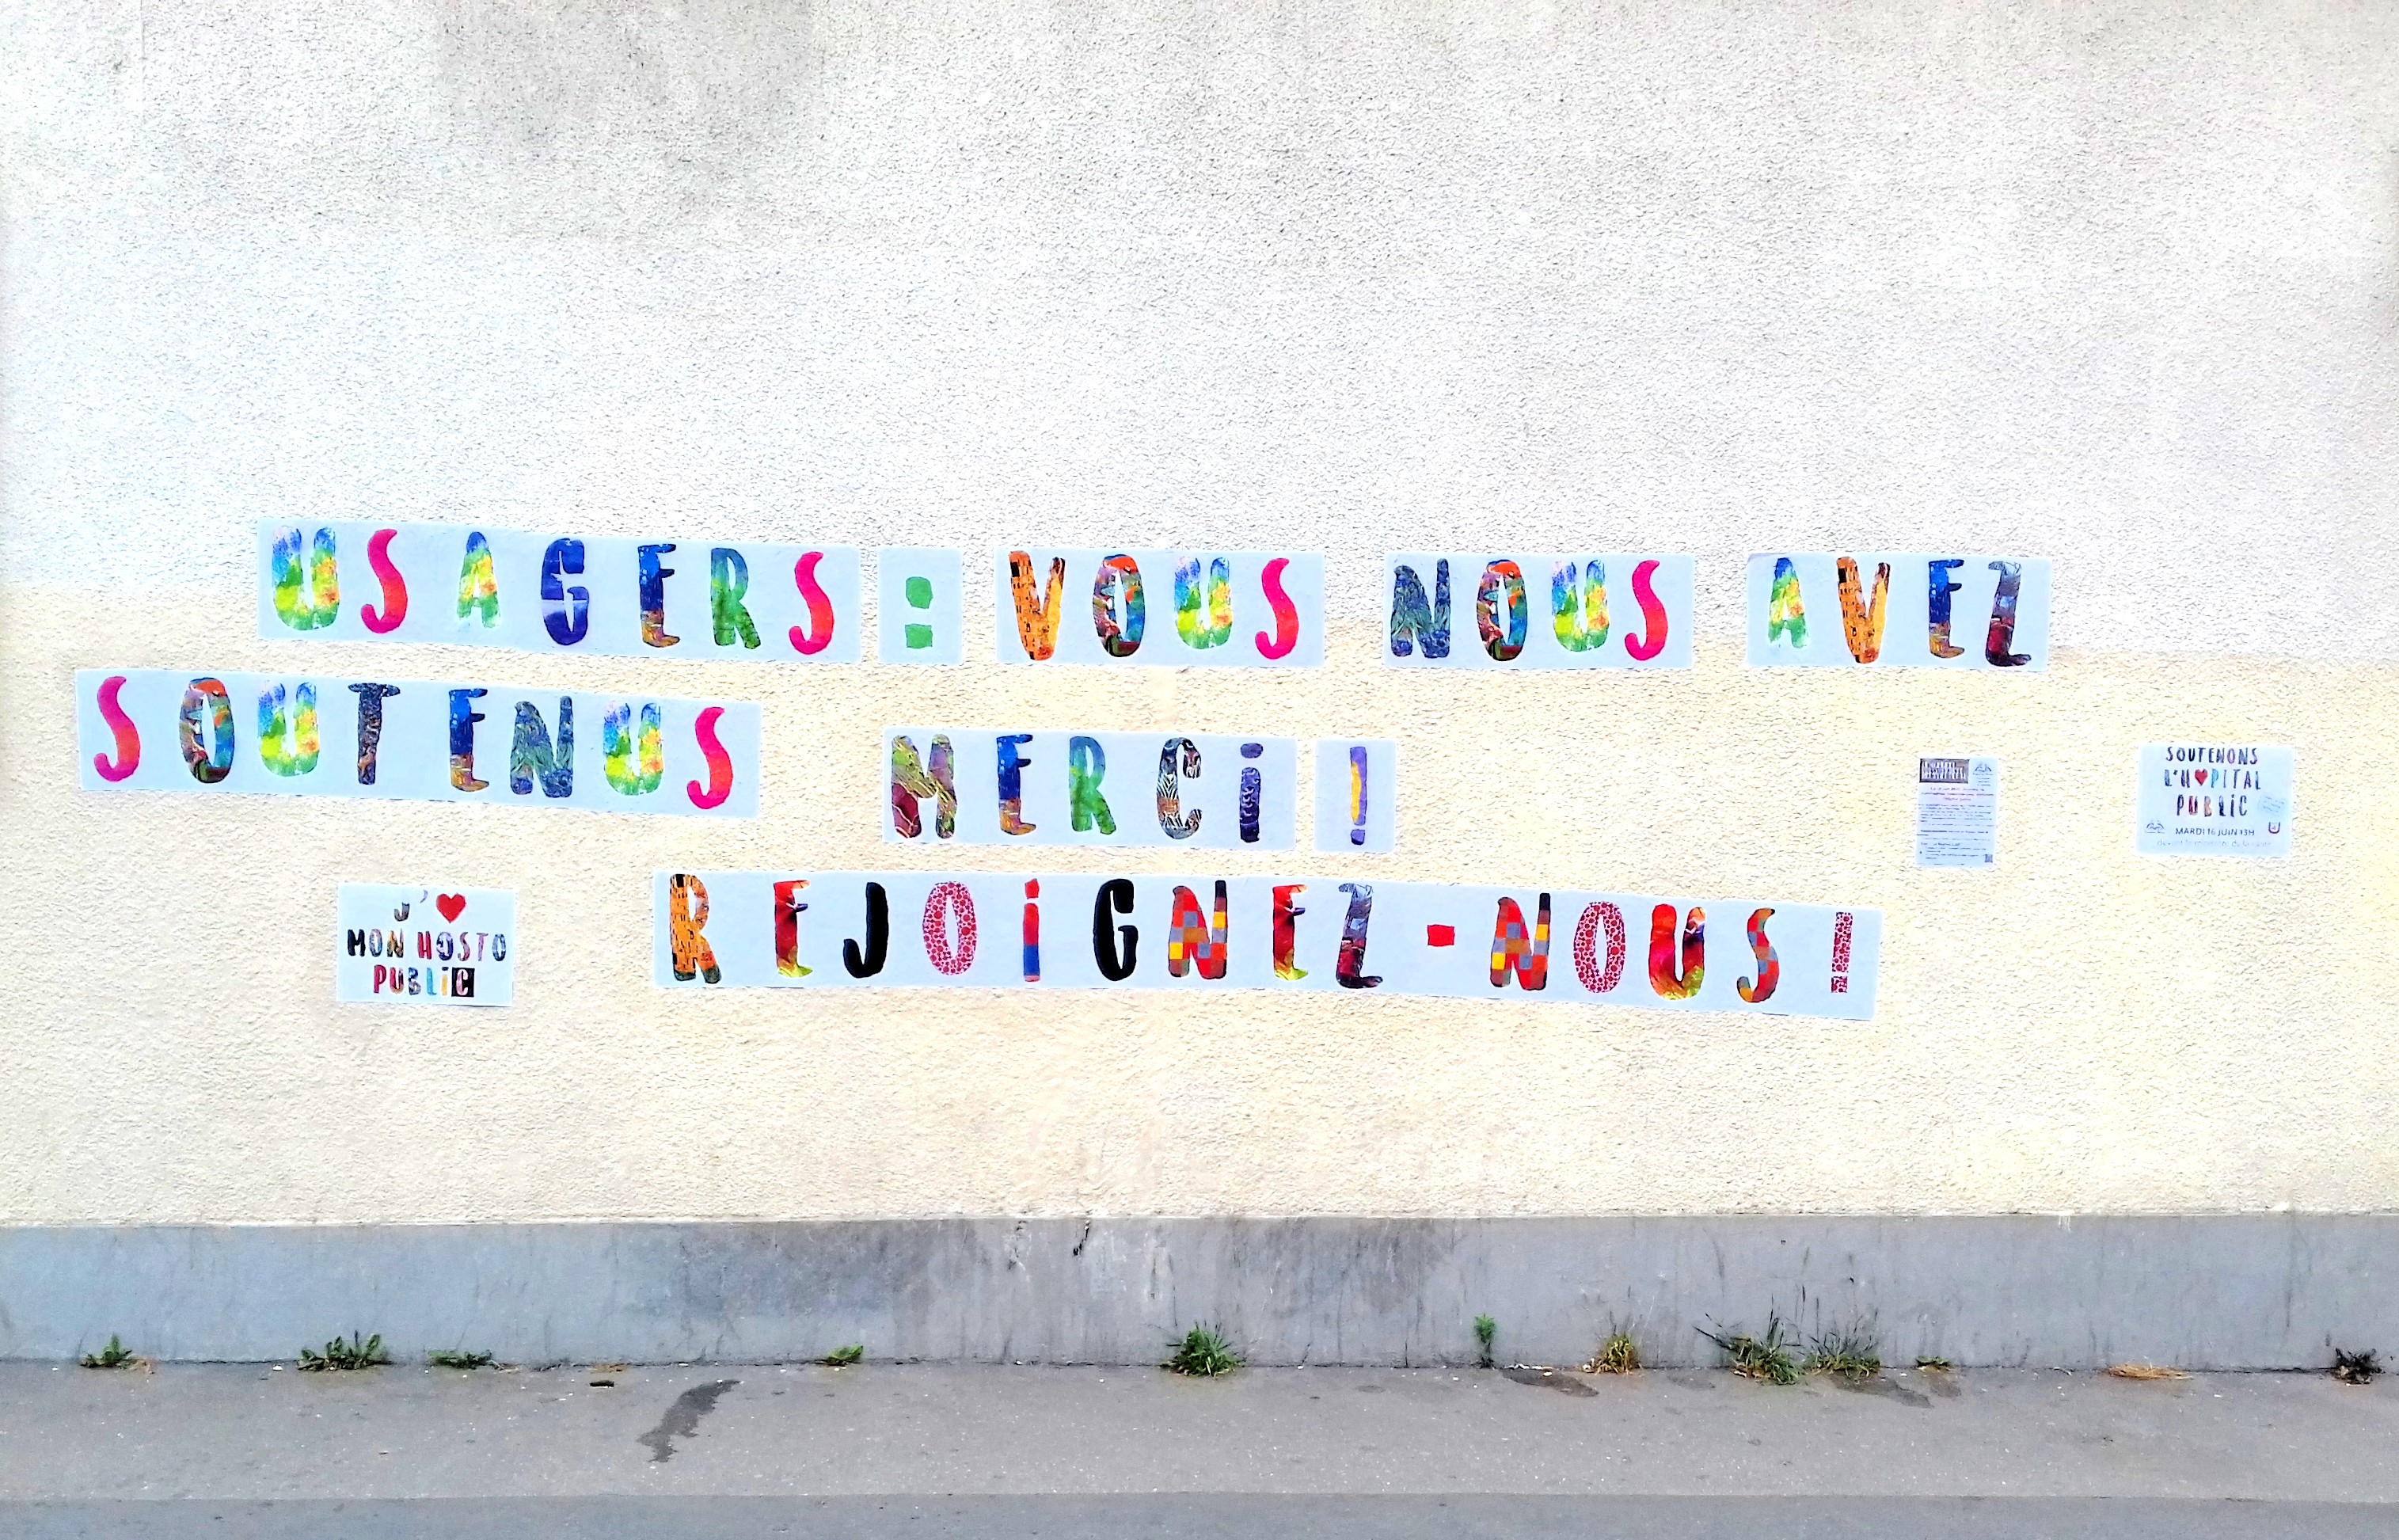 USAGERS : VOUS NOUS AVEZ
SOUTENUS MERCi !
REJOiGNEZ-NOUS !
J'❤
MON HOSTO
PUBLiC
SOUTENONS
L'H❤PITAL
PUBLiC
MARDI 16 JUIN 13H